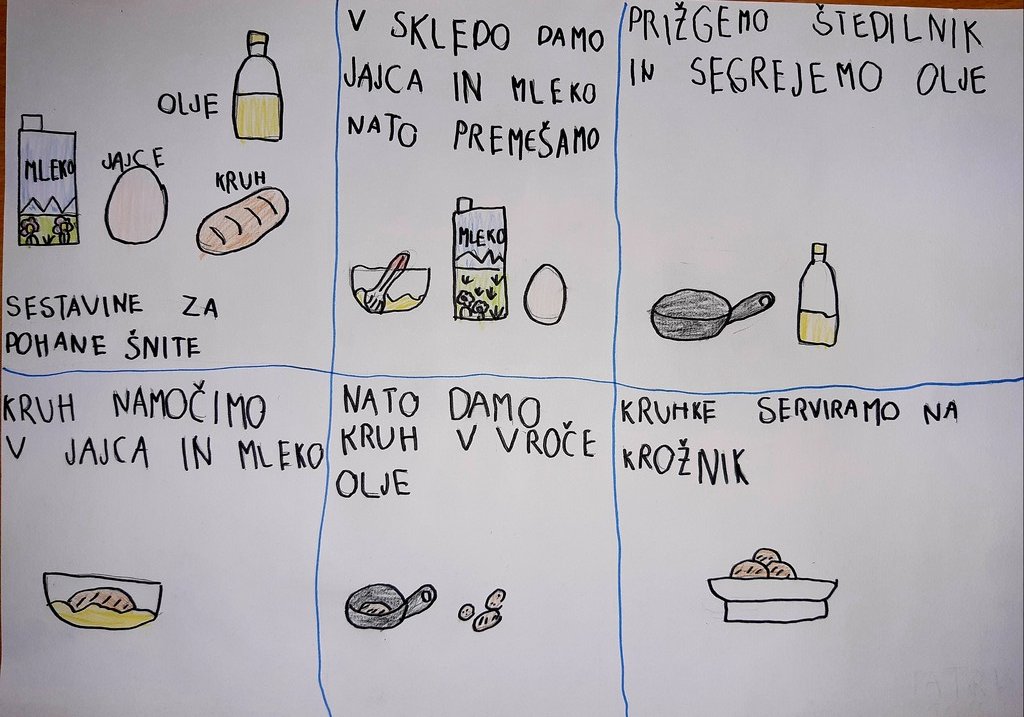 OLJE
MLEKO
JAJCE
KRUH
SESTAVINE ZA
POHANE ŠNITE
V SKLEDO DAMO
JAJCA IN MLEKO
NATO PREMEŠAMO
MLEKO
PRIŽGEMO ŠTEDILNIK
IN SEGREJEMO OLJE
KRUH NAMOČIMO
V JAJCA IN MLEKO
NATO DAMO
KRUH V VROČE
OLJE
KRUHKE SERVIRAMO NA
KROŽNIK